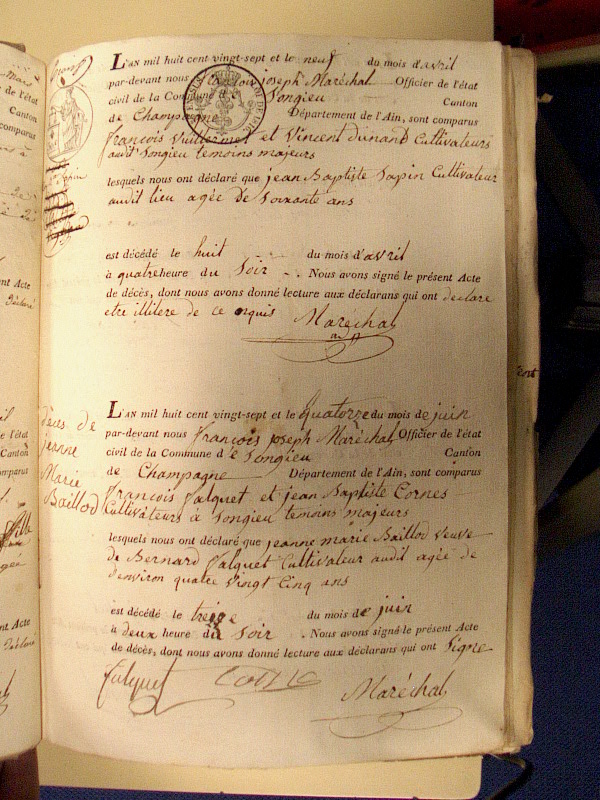 L'AN mil huit cent vingt-sept et le neuf du mois d'avril
par-devant nous françois joseph Maréchal Officier de l'état
civil de la Commune de Songieu Canton
de Champagne Département de l'Ain, sont comparus
françois Vuillermet et Vincent dunand Cultivateurs
audit Songieu temoins majeurs
lesquels nous ont déclaré que jean Baptiste Sapin Cultivateur
audit lieu agée de Soixante ans
est décédé le huit du mois d'avril
à quatre heure du Soir . Nous avons signé le présent Acte
de décès, dont nous avons donné lecture aux déclarans qui ont declare
etre illitere de ce requis Maréchal
décès de
jeanne
Marie
Baillod
L'AN mil huit cent vingt-sept et le quatorze du mois de juin
par-devant nous françois joseph Maréchal Officier de l'état
civil de la Commune de Songieu Canton
de Champagne Département de l'Ain, sont comparus
francois falquet et jean Baptiste Cornes
Cultivateurs à Songieu temoins majeurs
lesquels nous ont déclaré que jeanne marie Baillod veuve
de Bernard falquet Cultivateur audit agée de
d'environ quatre vingt Cinq ans
est décédé le treize du mois de juin
à deux heure du Soir . Nous avons signé le présent Acte
de décès, dont nous avons donné lecture aux déclarans qui ont Signe
falquet
Maréchal